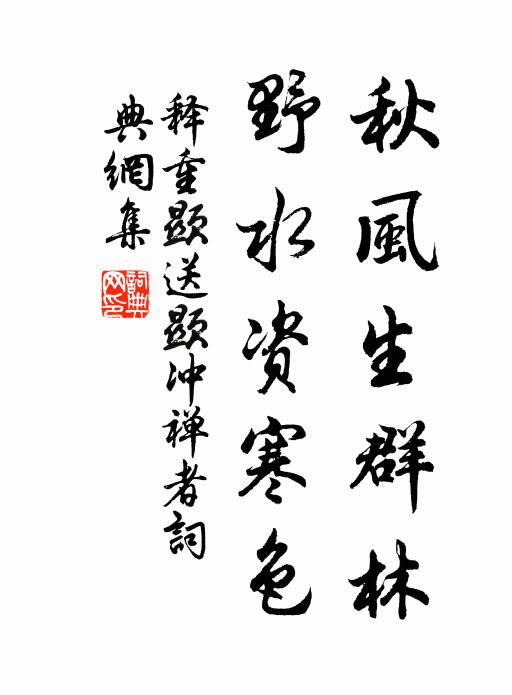 秋風生群林
野水资寒色
释重顯送顯冲禅者詞
典網集
詞典網印